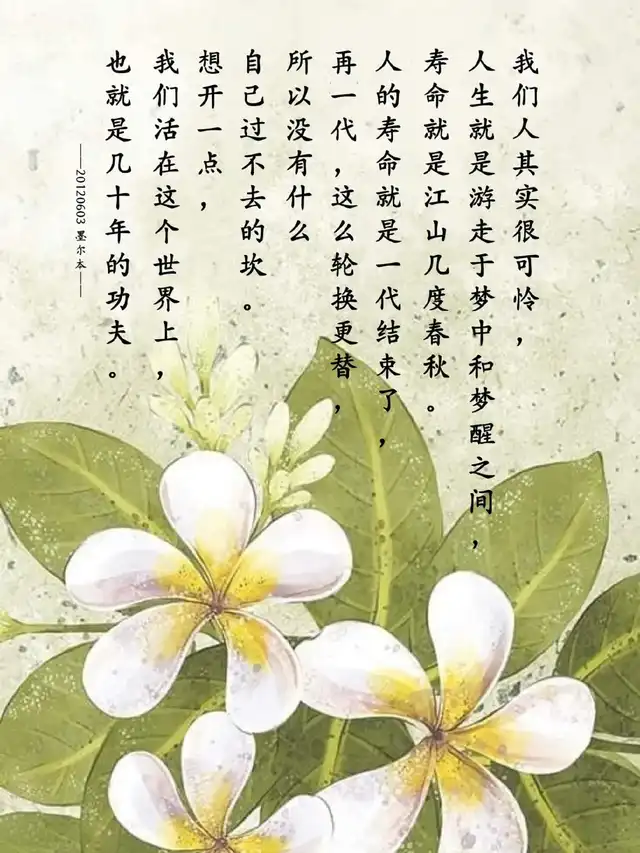 我们人其实很可怜，
人生就是游走于梦中和梦醒之间，
寿命就是江山几度春秋。
人的寿命就是一代结束了，
再一代，这么轮换更替，
所以没有什么
自己过不去的坎。
想开一点，
我们活在这个世界上，
也就是几十年的功夫。
——20120603 墨尔本——